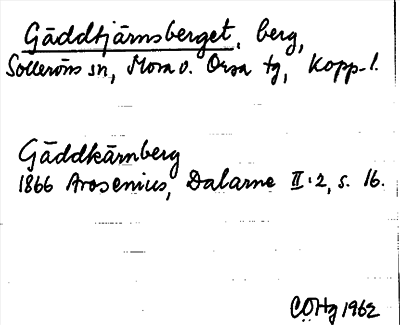 Gäddtjärnsberget, berg,
Solleröns sn, Mora o. Orsa tg, Kopp.l.
Gäddkärnberg
1866 Arosenius, Dalarne II:2, s. 16.
CÖHg 1962